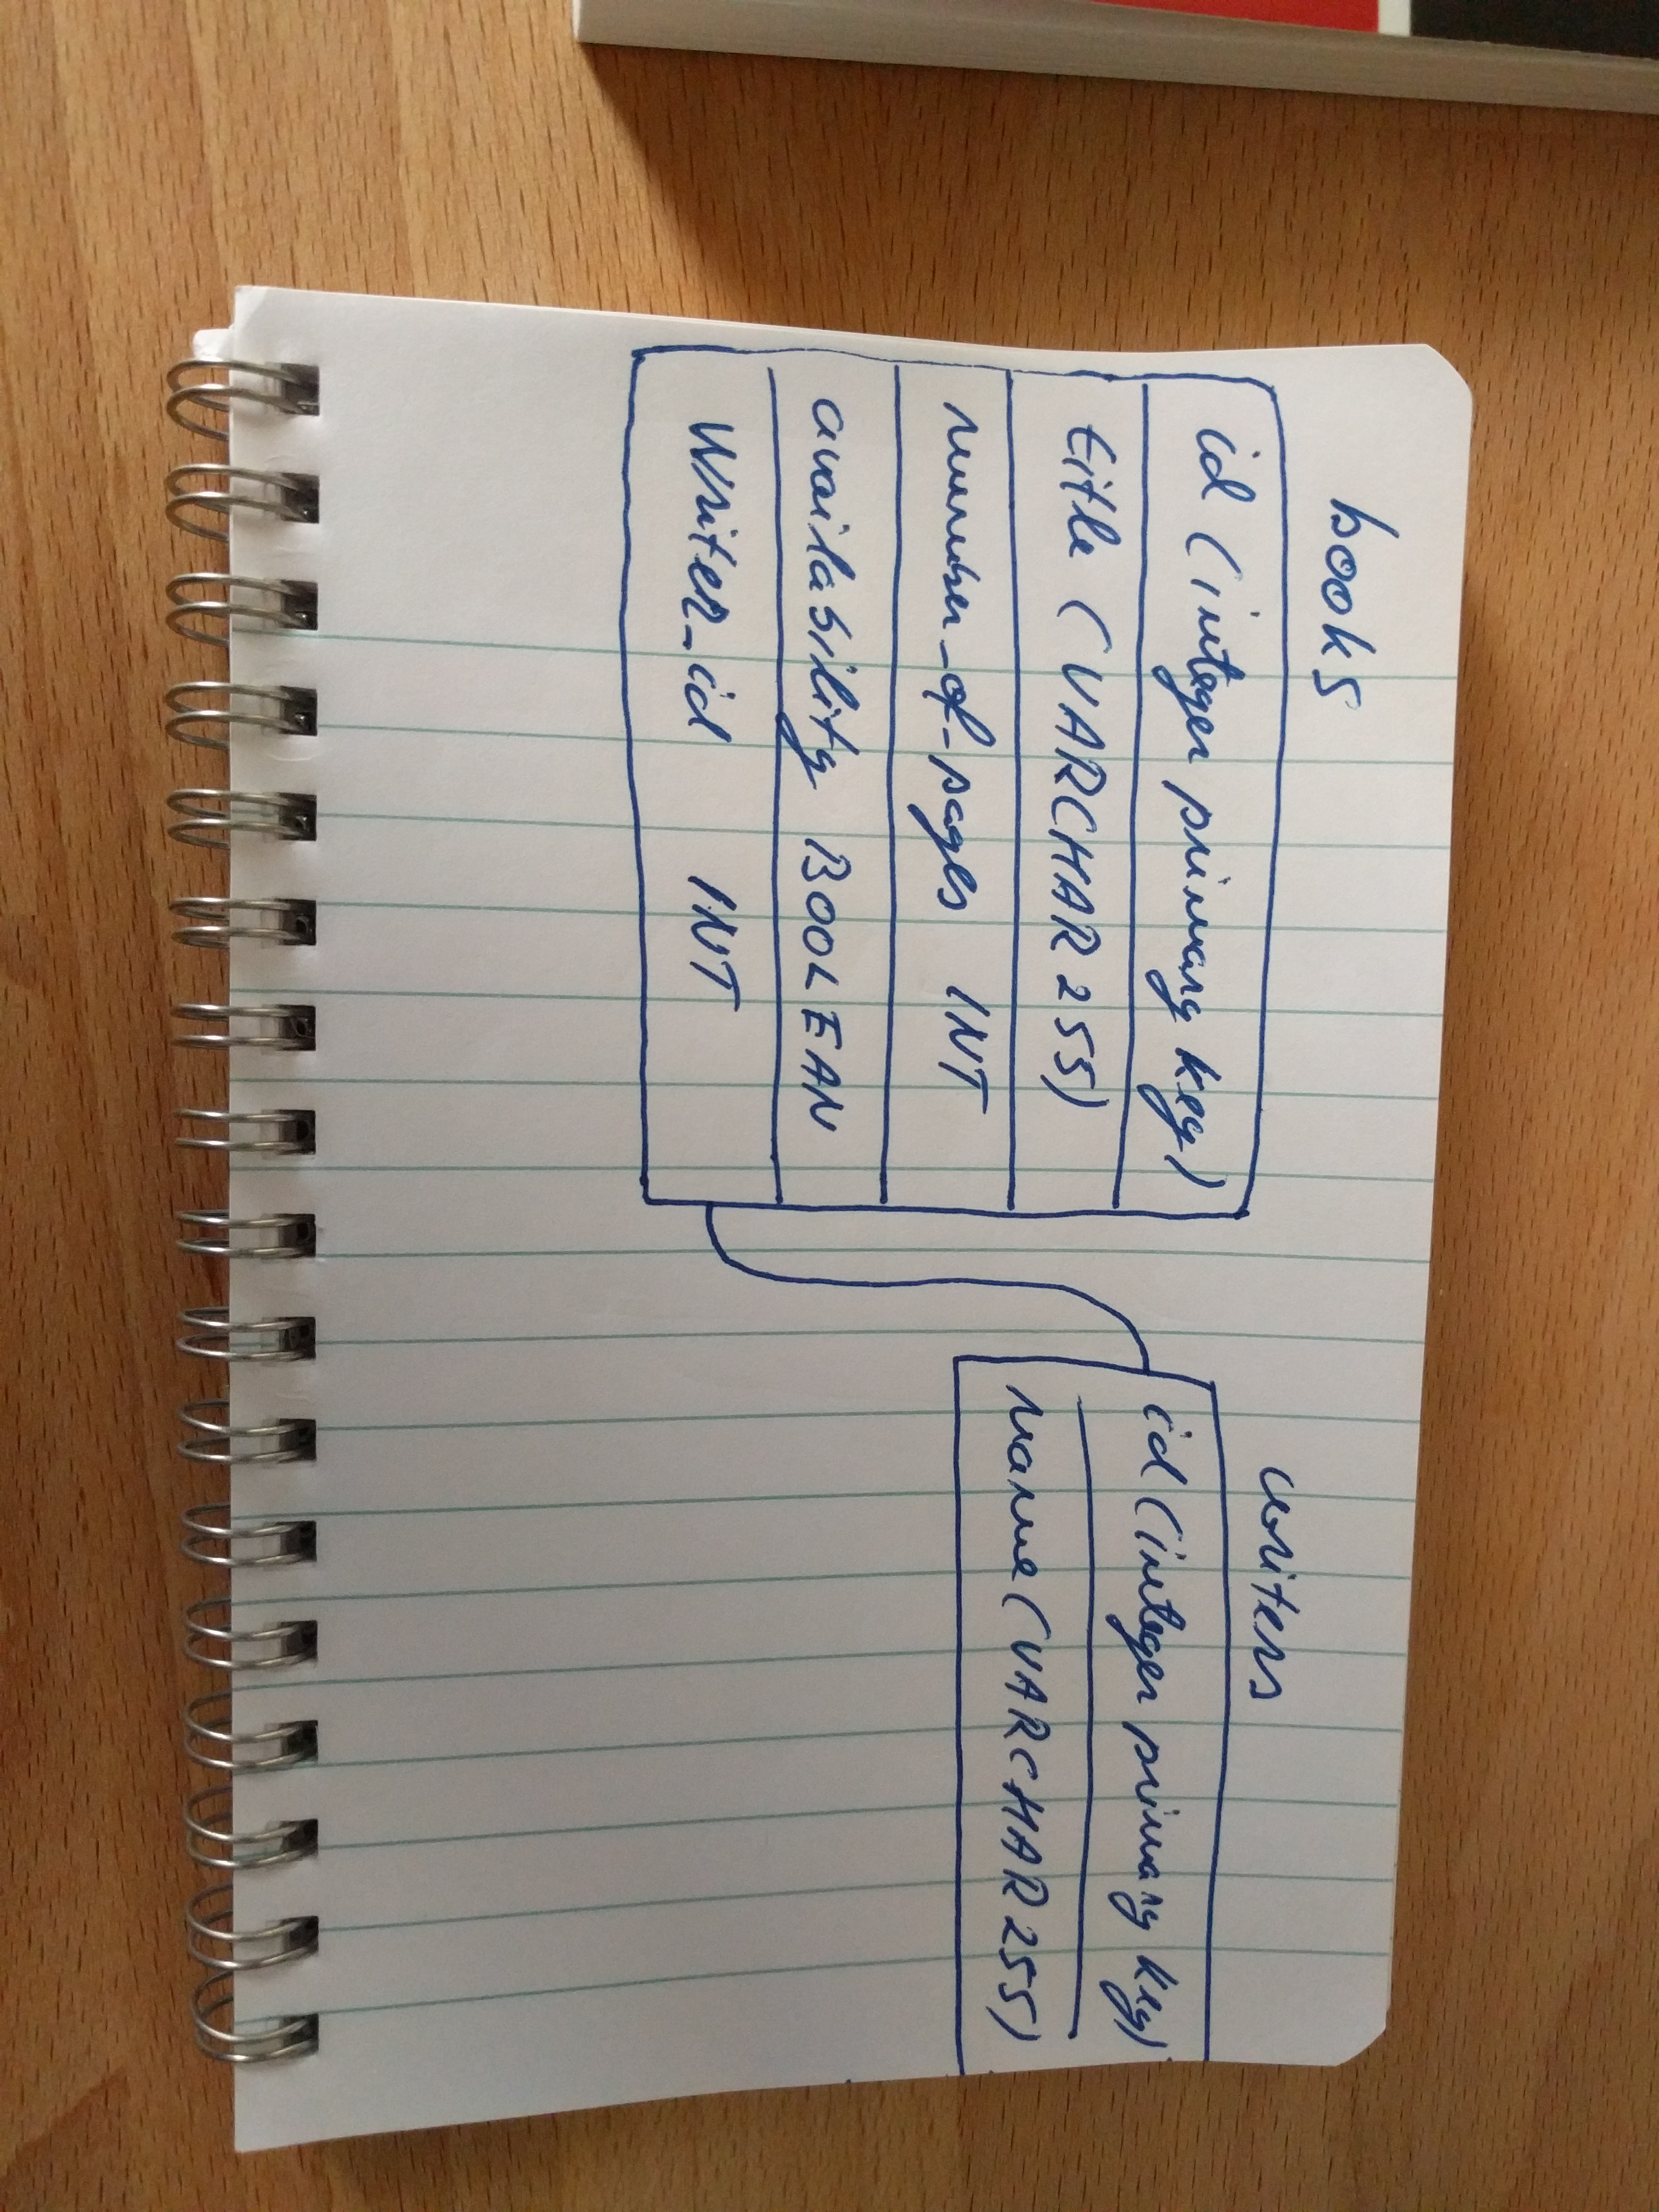 books
id (integer primary key)
title (VARCHAR 255)
number_of_pages INT
availability BOOLEAN
Writer_id INT
writers
id (integer primary key)
name (VARCHAR 255)